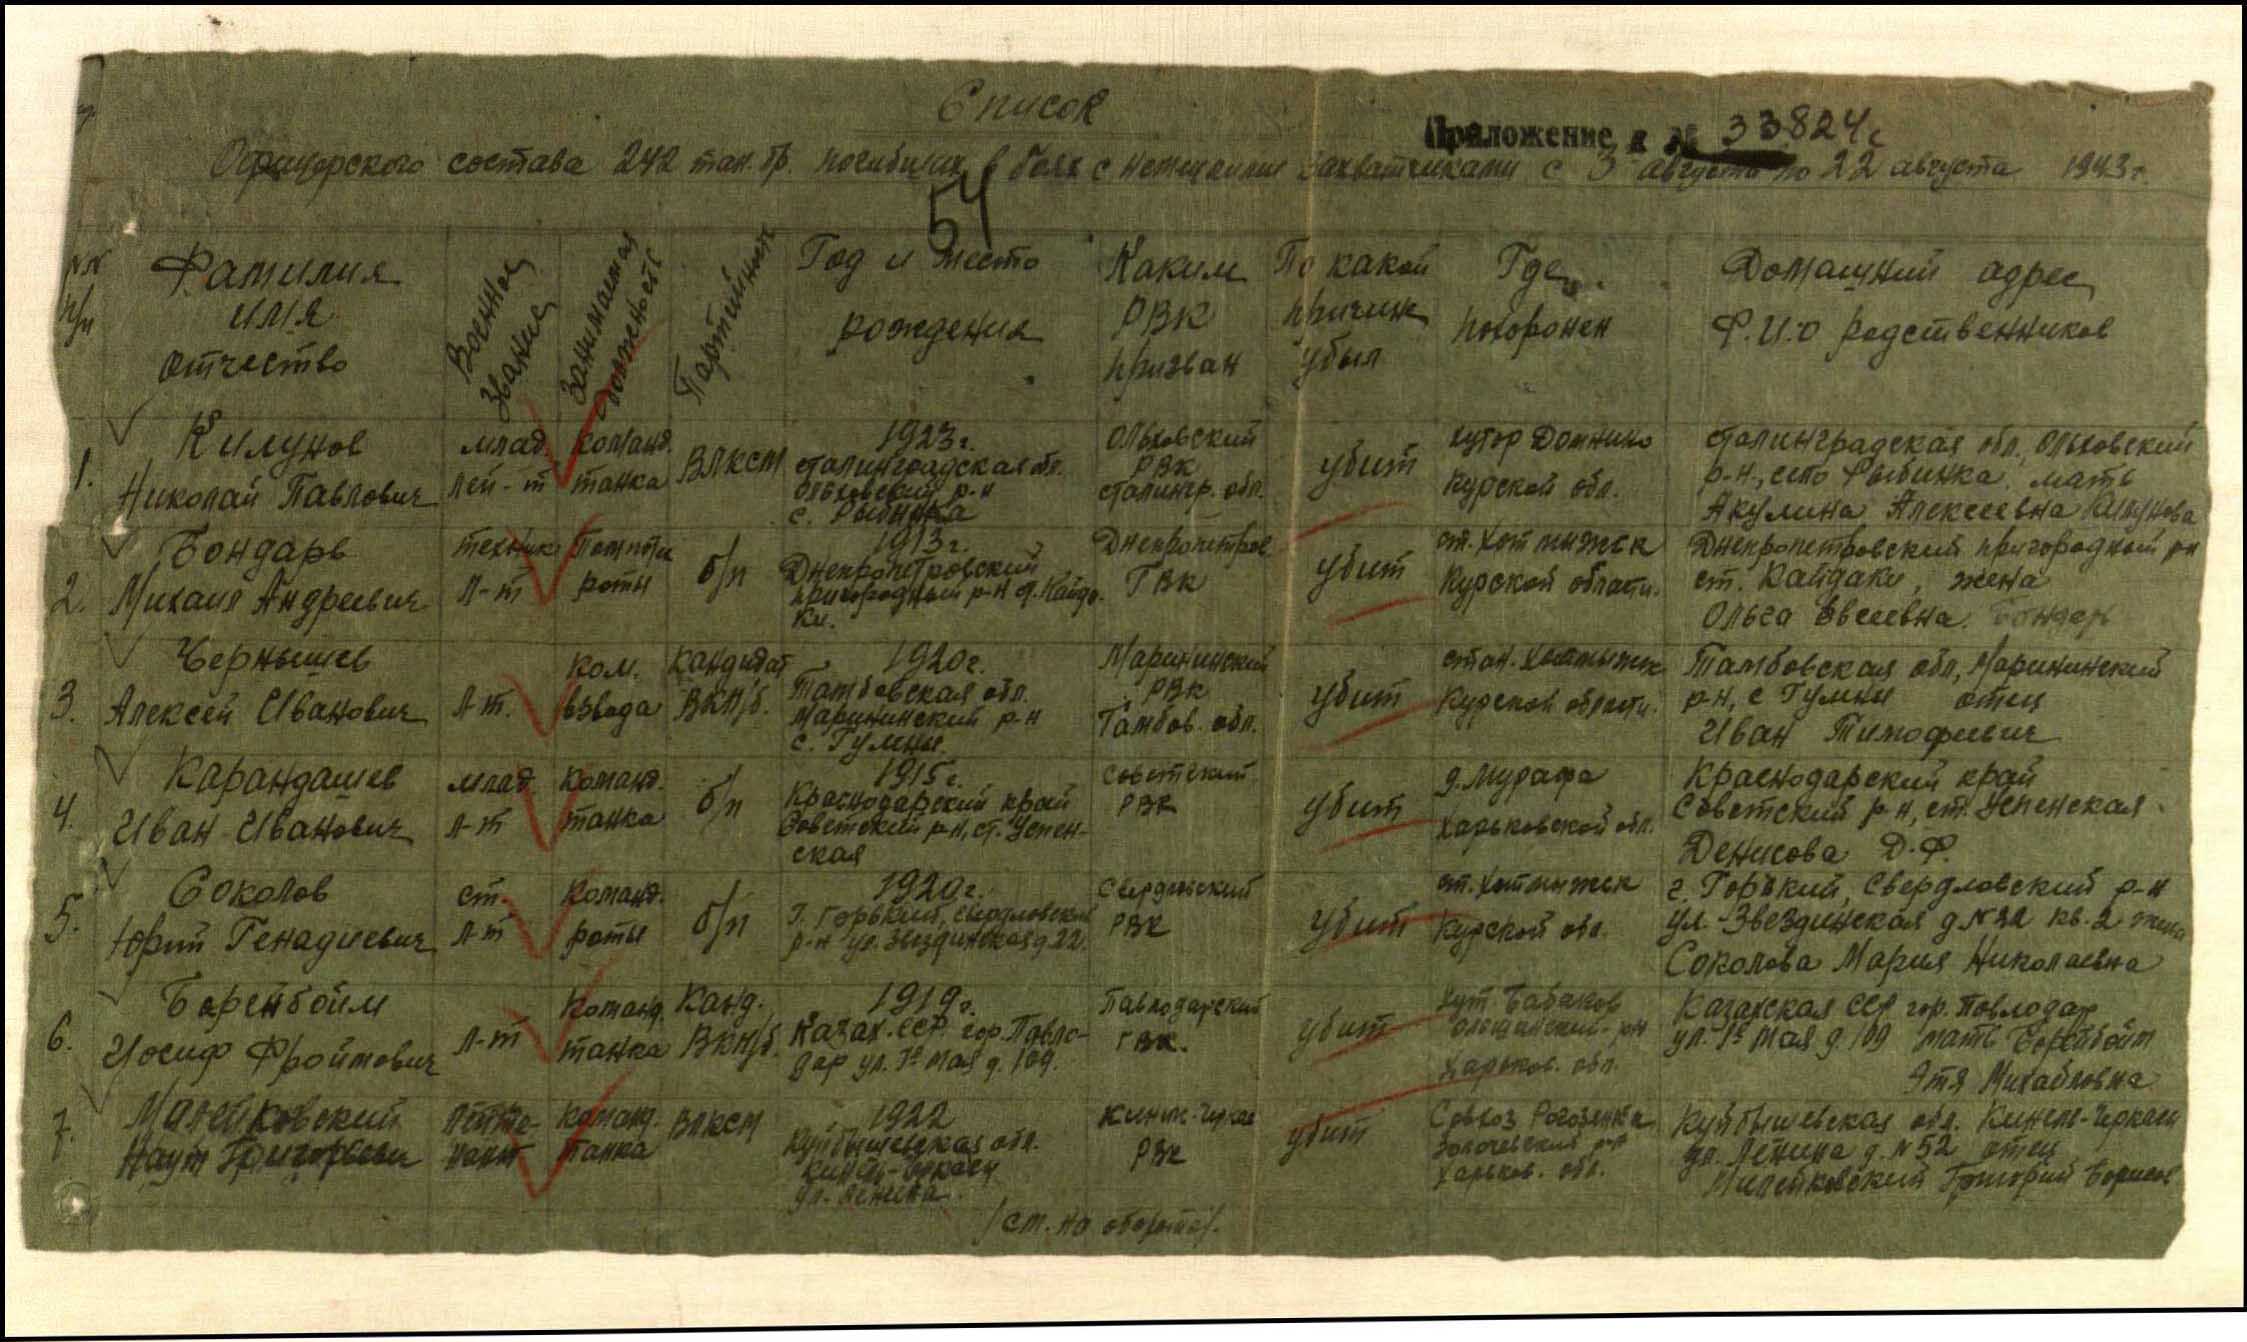 Список
Приложение к № 33824с
Офицерского состава 242 тан. бр. погибших в боях с немецкими захватчиками с 3 августа по 22 августа 1943 г.
54
NN п/п
Фамилия имя отчество
Военное звание
Занимаемая должность
Партийность
Год и место рождения
Каким РВК призван
По какой причин убыл
Где похоронен
Домашний адрес Ф.И.О родственников
1.
Килунов
Николай Павлович
млад.
лей-т
команд.
танка
ВЛКСМ
1923 г.
сталинградская обл.
Ольховский р-н
с. Рыбинка
Ольховский
РВК
сталингр. обл.
убит
хутор Домнино
Курской обл.
сталинградская обл., Ольховский
р-н, село Рыбинка, мать
Акулина Алексеевна
2.
Бондарь
Михаил Андреевич
техник
л-т
роты
б/п
1913 г.
Днепропетровский
пригородный р-н ст. Кайда-
ки.
Днепропетров
ГВК
убит
ст. Хотмыжск
Курской области.
Днепропетровский пригородный р-н
ст. Кайдаки, жена
Ольга Евсеевна Бондарь
3.
Чернышев
Алексей Иванович
л-т.
ком.
взвода
кандидат
ВКП/б.
1920 г.
Тамбовская обл.
Маринински р-н
с. Гумны.
Марининский
РВК
Тамбов. обл.
убит
стан. Хотмыжск
Курской области.
Тамбовская обл, Марининский
р-н, с Гумны отец
Иван Тимофеевич
4.
Карандашев
Иван Иванович
млад.
л-т
команд.
танка
б/п
1915 г.
Краснодарский край
Советский р-н, ст. Успен-
ская
Советский
РВК
убит
д. Мурафа
Харьковской обл.
Краснодарский край
Советский р-н, ст. Успенская
Денисова Д.Ф.
5.
Соколов
Юрий Генадиевич
ст.
л-т
команд.
роты
б/п
1920 г.
г. Горький, Свердловский
р-н ул. Звездинская д 22.
Свердловский
РВК
убит
ст. Хотмыжск
Курской обл.
г. Горький, Свердловский р-н
ул. Звездинская д N 22 кв. 2 жена
Соколова Мария Николаевна
6.
Боренбойм
Иосиф Фроймович
л-т
команд.
танка
Канд.
ВКП/б.
1919 г.
Казах. ССР гор. Павло-
дар ул. 1е мая д. 109.
Павлодарский
ГВК.
убит
хут. Бабаков
р-н
Харьков. обл.
Казахская ССР гор. Повлодар
ул. 1е мая д. 109 мать Боренбойм
Этя Михайловна
7.
Малейковский
Наум Григорьевич
лейте-
нант
команд.
танка
ВЛКСМ
1922
Куйбышевская обл.
Кинель-Черкасы
ул. Ленина
Кинель-Черкас
РВК
убит
Совхоз
Золочевский р-н
Харьков. обл.
Куйбышевская обл. Кинель-Черкасы
ул. Ленина д. N 52 отец
Малейковский Григорий Борисов
/см. на обороте/.